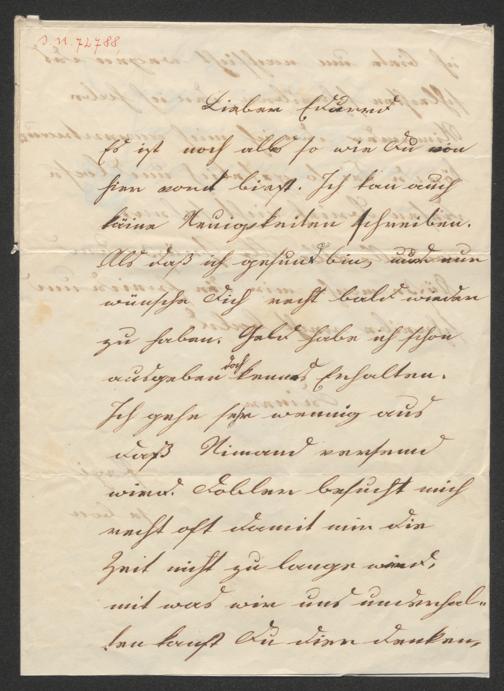 J.N. 72788
Lieber Eduard
Es ist noch alls so wie Du von
hier vond bist. Ich kan auch
käine Neuigkeiten schreiben.
Als daß ich gesund bin, und nur
wünsche Dich recht bald wieder
zu haben. Geld habe ich schon
ausgeben doch keines Erhalten.
Ich gehe sehr wennig aus
daß Nimand
wird. Dobler besucht mich
recht oft damit mir die
Zeit nicht zu lange wird,
mit was wir uns underhal-
ten kanst Du dier denken,